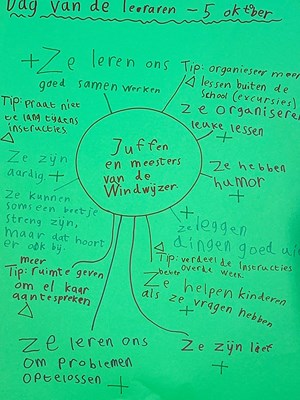 Dag van de leraren - 5 oktober
+ Ze leren ons
goed samenwerken
Tip: organiseer meer
lessen buiten de
school (excursies)
Ze organiseren
leuke lessen
+
Tip: praat niet
te lang tijdens
instructies.
Juffen
en meesters
van de
Windwijzer
Ze zijn
aardig +
Ze hebben
humor +
Ze kunnen
soms een beetje
streng zijn,
maar dat hoort
er ook bij.
+
Ze leggen
dingen goed uit
Tip: verdeel de instructies
beter over de week
meer
Tip: ruimte geven
om elkaar
aan te spreken
Ze helpen kinderen
als ze vragen hebben
+
Ze leren ons
om problemen
op te lossen +
Ze zijn lief
+